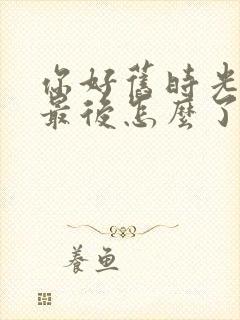 你好舊時光
最後怎麼了
養魚